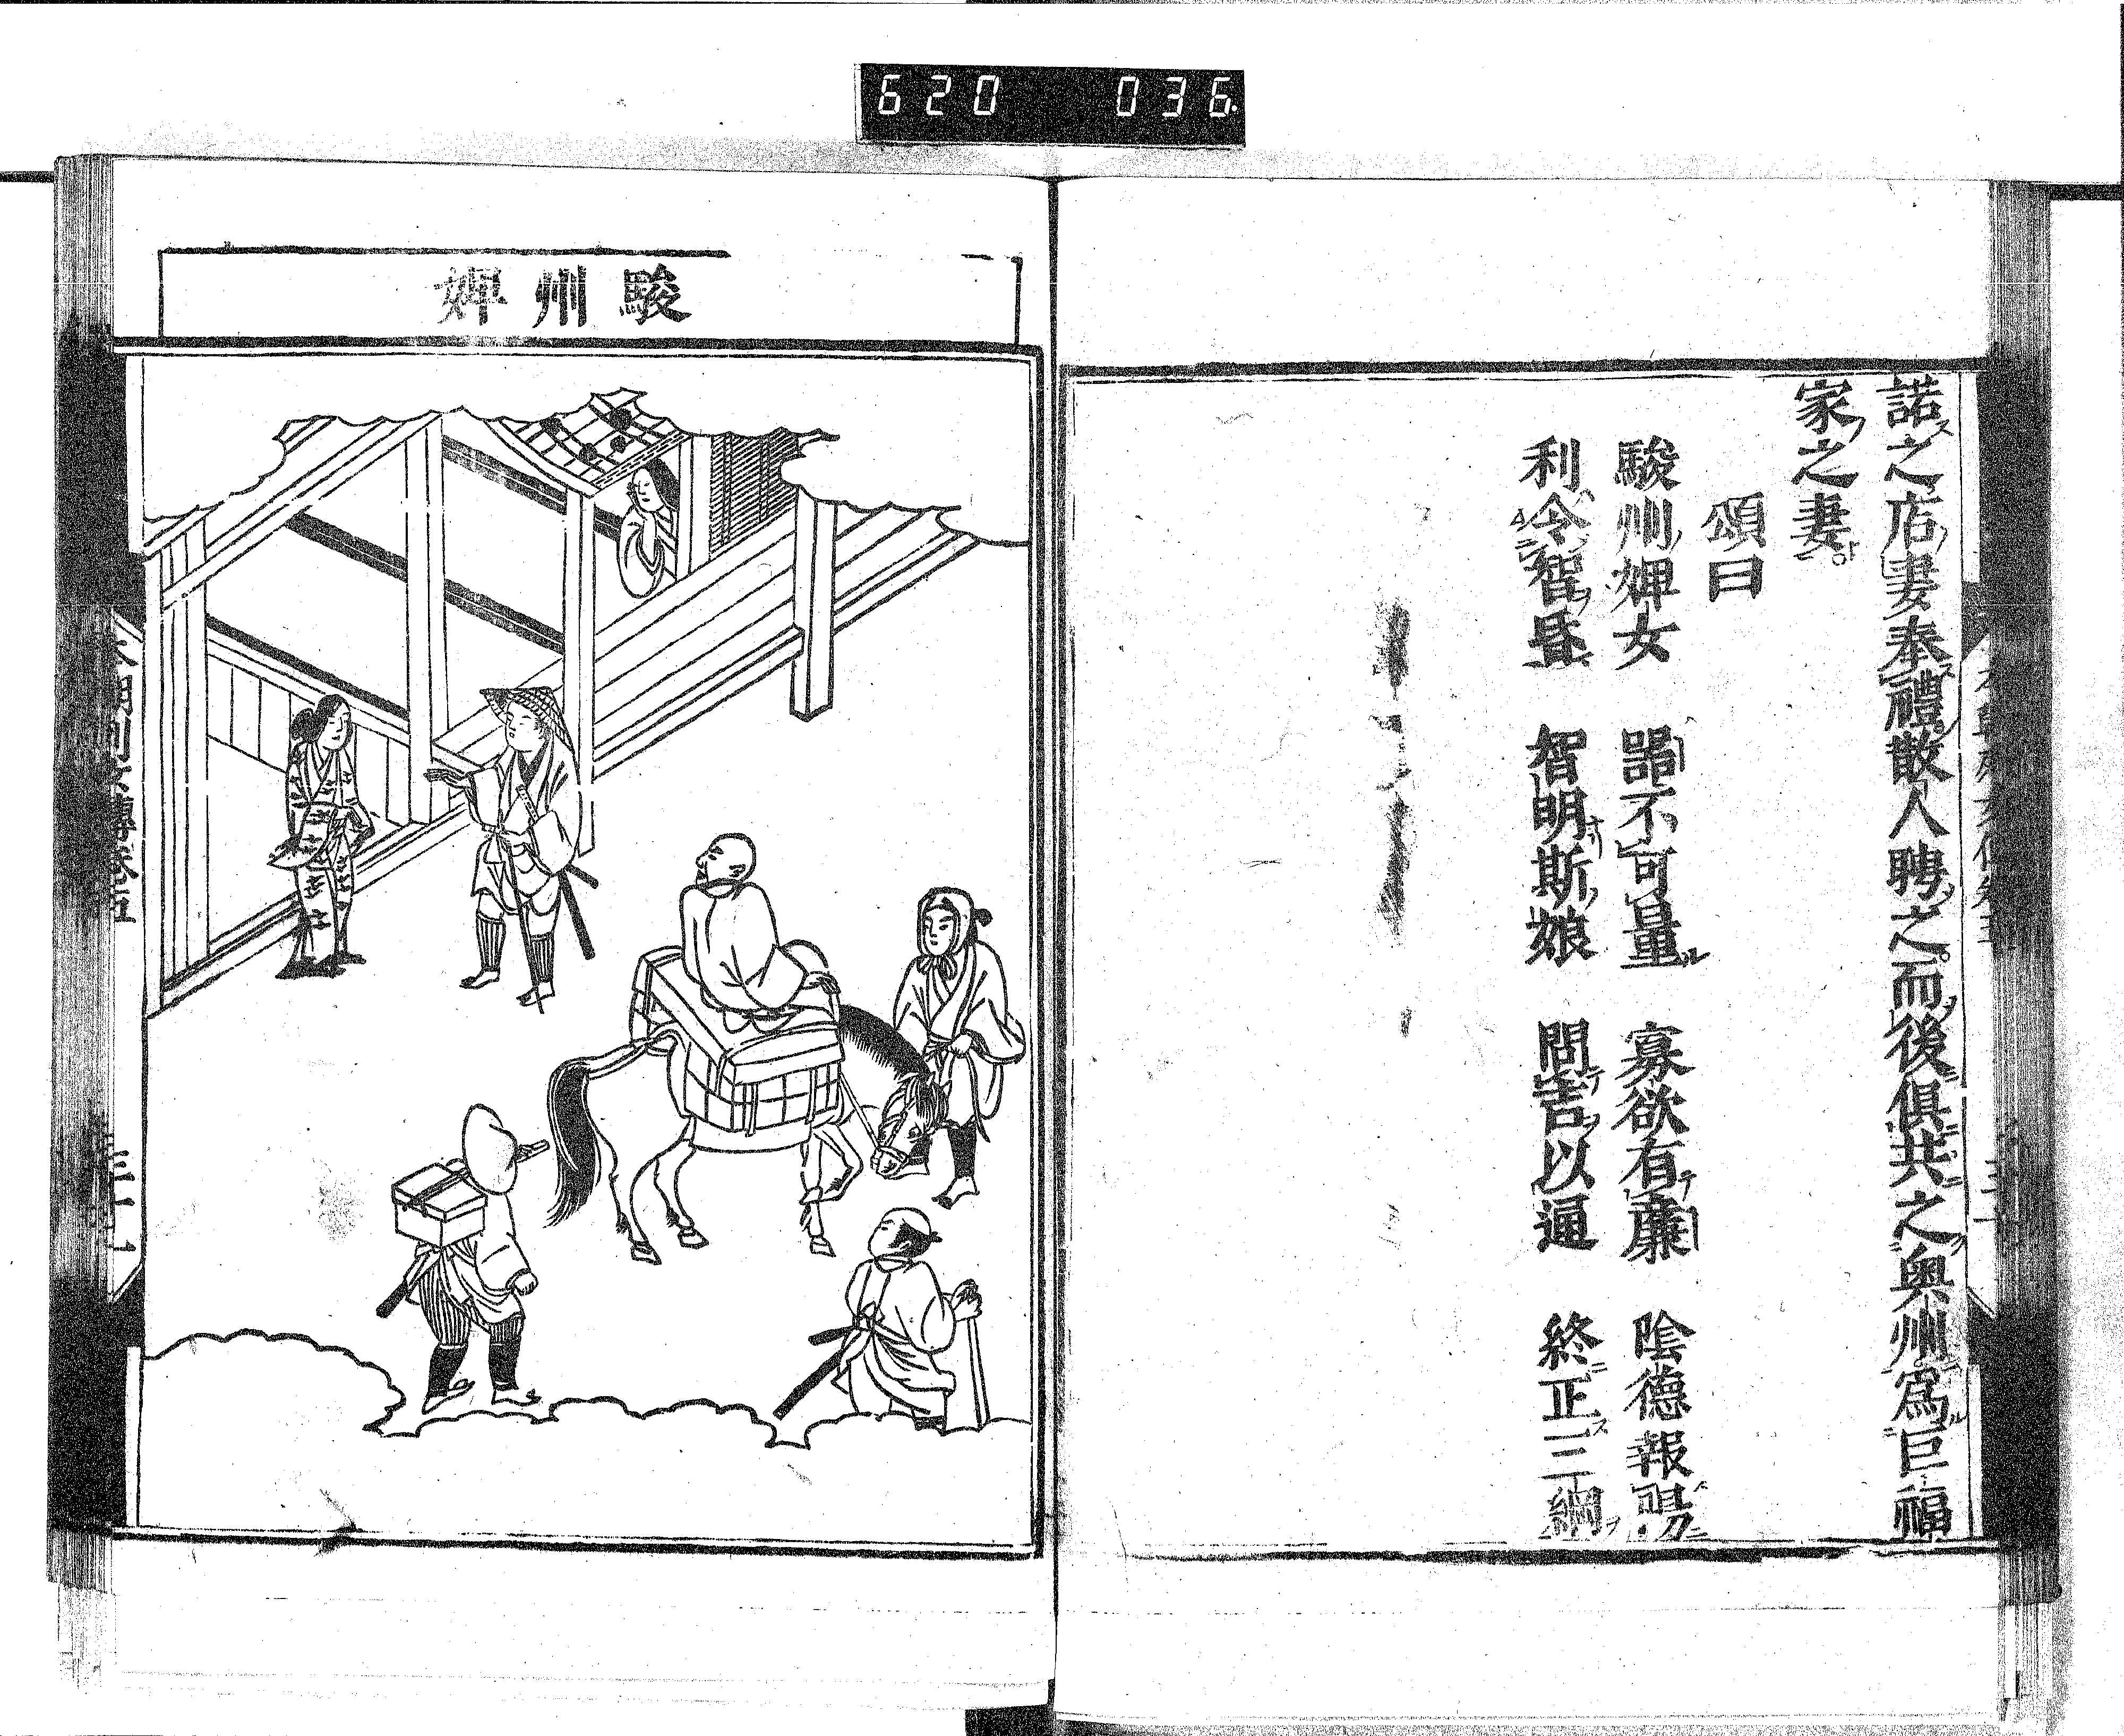 620 036.
諾之店妻奉禮散人聘之而後俱共之奥州爲巨福
家之妻
頌曰
駿州婢女 器不可量 寡欲有廉 陰德報陽
利令智昏 智明斯娘 問吉以通 終正三綱
駿州婢